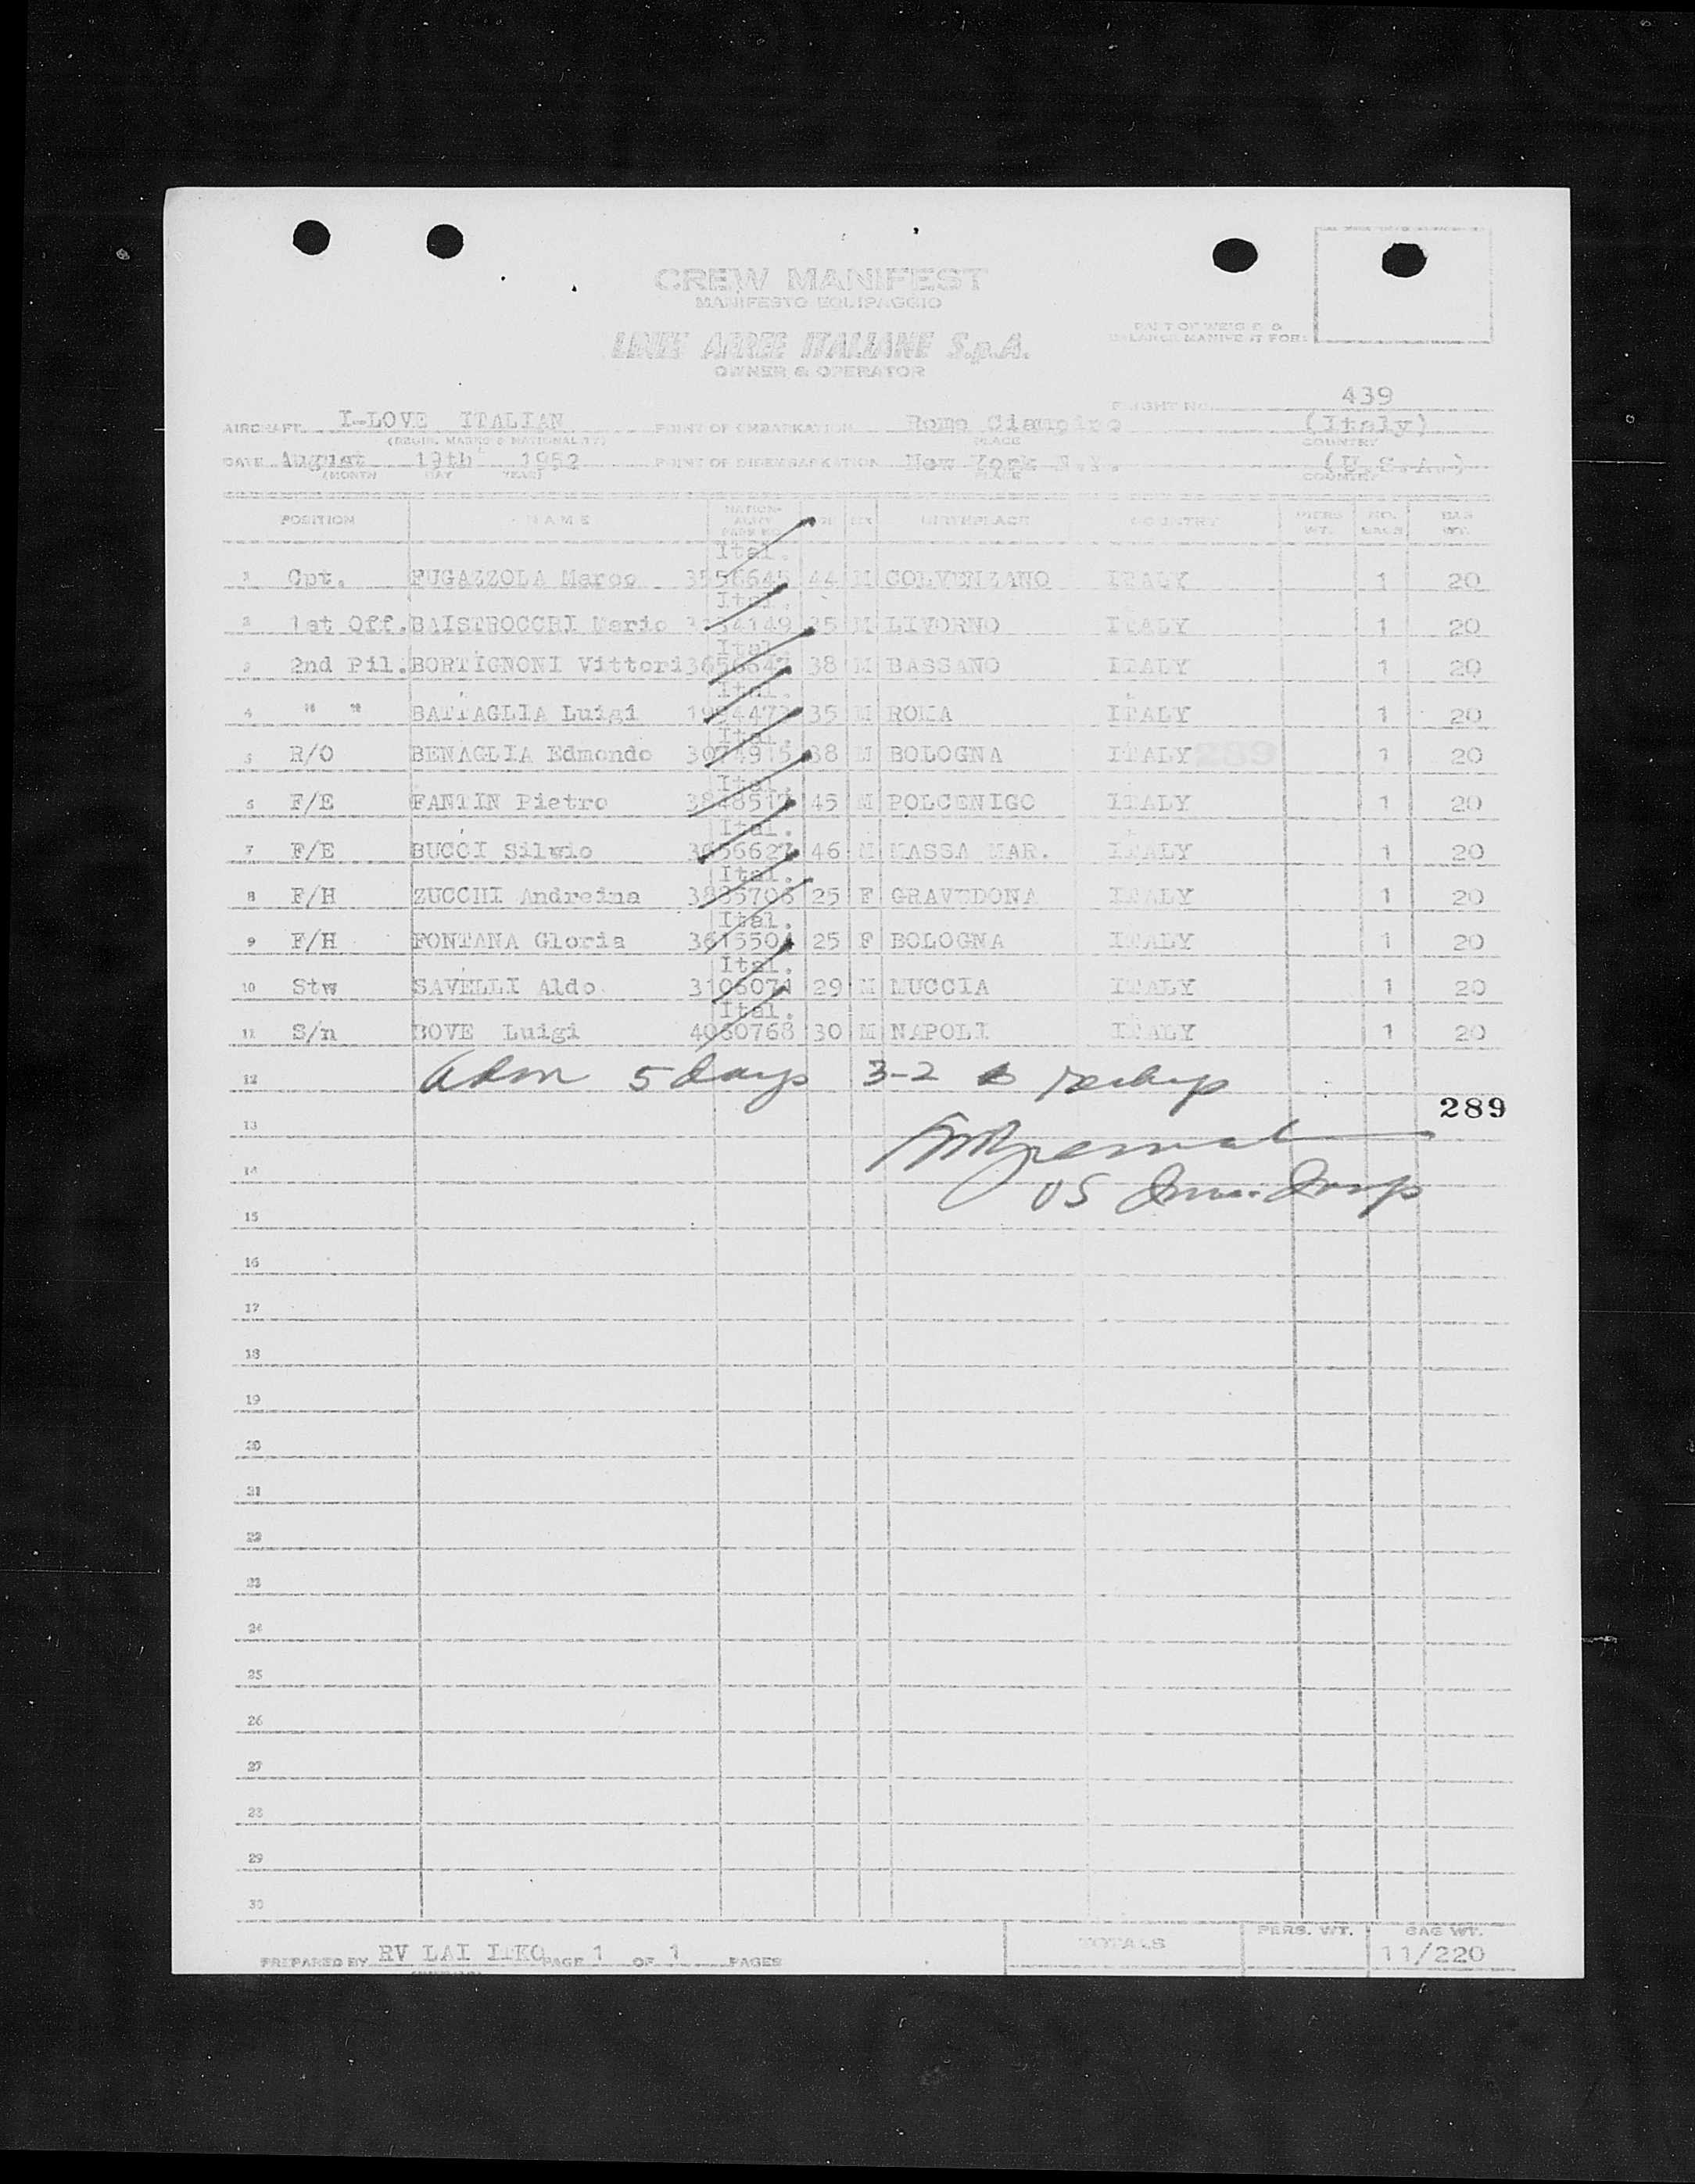 CREW MANIFEST
MANIFESTO EQUIPAGGIO
LINEE AEREE ITALIANE S.p.A.
OWNER & OPERATOR
PART OF WEIGHT &
BALANCE MANIFEST FORM
FLIGHT NO. 439
AIRCRAFT I-LOVE ITALIAN POINT OF EMBARKATION Roma Ciampino (Italy)
(REGIS. MARKS & NATIONALITY) PLACE COUNTRY
DATE August 19th 1952 POINT OF DISEMBARKATION New York N.Y. (U.S.A.)
(MONTH DAY YEAR) PLACE COUNTRY
POSITION NAME NATION-ALITY PASS NO. AGE SEX BIRTHPLACE COUNTRY PERS. WT. NO. BAGS BAG WT.
Ital.
1 Cpt. FUGAZZOLA Marco 44 M ITALY 1 20
Ital.
2 1st Off. BAISTROCCHI Mario 35 M LIVORNO ITALY 1 20
Ital.
3 2nd Pil. BORTIGNONI Vittori 38 M BASSANO ITALY 1 20
Ital.
4 " " BATTAGLIA Luigi 35 M ROMA ITALY 1 20
Ital.
5 R/O BENAGLIA Edmondo 3074915 38 M BOLOGNA ITALY 1 20
Ital.
6 F/E FANTIN Pietro 45 M POLCENIGO ITALY 1 20
Ital.
7 F/E BUCCI Silvio 3656627 46 M MASSA MAR. ITALY 1 20
Ital.
8 F/H ZUCCHI Andreina 25 F GRAVEDONA ITALY 1 20
Ital.
9 F/H FONTANA Gloria 3615504 25 F BOLOGNA ITALY 1 20
Ital.
10 Stw SAVELLI Aldo 3106071 29 M MUCCIA ITALY 1 20
Ital.
11 S/n BOVE Luigi 4060768 30 M NAPOLI ITALY 1 20
12 Adm 5 days 3-2
289
13
14
US Imm. Insp
15
16
17
18
19
20
21
22
23
24
25
26
27
28
29
30
PREPARED BY RV LAI PAGE 1 OF 1 PAGES TOTALS PERS. WT. BAG WT.
11/220